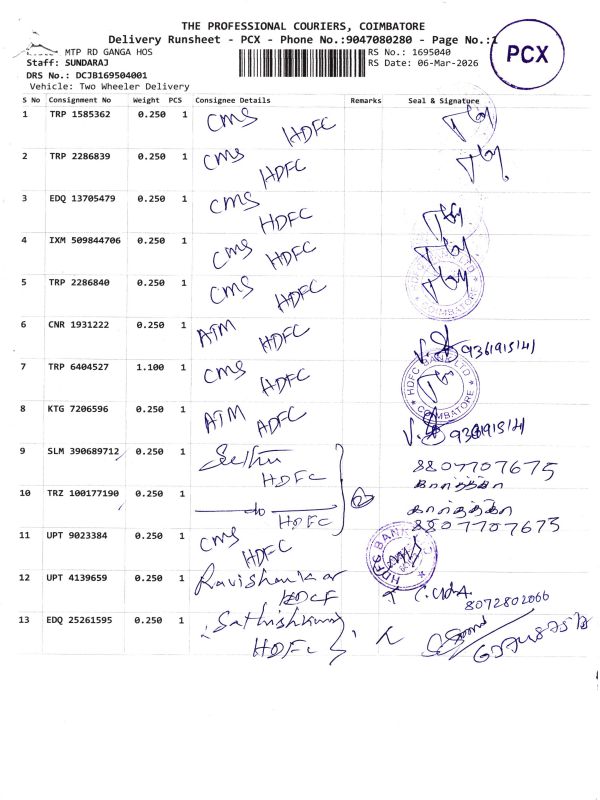 THE PROFESSIONAL COURIERS, COIMBATORE
Delivery Runsheet - PCX - Phone No.:9047080280 - Page No.:1
PCX
MTP RD GANGA HOS
RS No.: 1695040
Staff: SUNDARAJ
RS Date: 06-Mar-2026
DRS No.: DCJB169504001
Vehicle: Two Wheeler Delivery
S No Consignment No Weight PCS Consignee Details Remarks Seal & Signature
1 TRP 1585362 0.250 1 CMS HDFC
2 TRP 2286839 0.250 1 CMS HDFC
3 EDQ 13705479 0.250 1 CMS HDFC
4 IXM 509844706 0.250 1 CMS HDFC
5 TRP 2286840 0.250 1 CMS HDFC
COIMBATORE
6 CNR 1931222 0.250 1 ATM HDFC
7 TRP 6404527 1.100 1 CMS HDFC
HDFC BANK LTD COIMBATORE
8 KTG 7206596 0.250 1 ATM HDFC
9 SLM 390689712 0.250 1 Sethu HDFC 8807707675
கார்த்திக்
10 TRZ 100177190 0.250 1 do HDFC கார்த்திக்
8807707675
11 UPT 9023384 0.250 1 CMS HDFC
HDFC BANK
12 UPT 4139659 0.250 1 Ravishankar HDCF
8072802066
13 EDQ 25261595 0.250 1 Sathishkumar HDFC